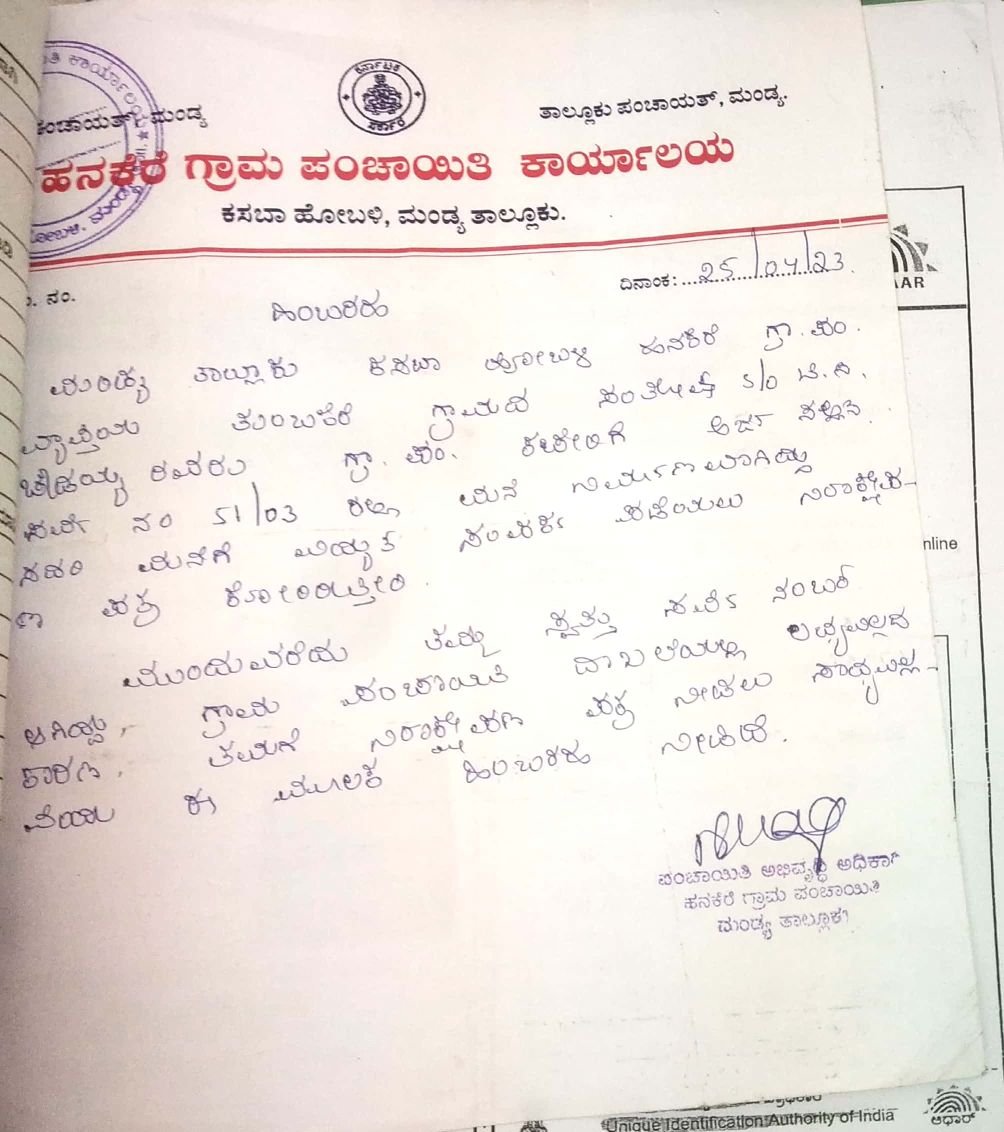 ಕರ್ನಾಟಕ
ಸರ್ಕಾರ
ಪಂಚಾಯತ್, ಮಂಡ್ಯ
ತಾಲ್ಲೂಕು ಪಂಚಾಯತ್, ಮಂಡ್ಯ.
ಹನಕೆರೆ ಗ್ರಾಮ ಪಂಚಾಯಿತಿ ಕಾರ್ಯಾಲಯ
ಕಸಬಾ ಹೋಬಳಿ, ಮಂಡ್ಯ ತಾಲ್ಲೂಕು.
ನಂ.
ದಿನಾಂಕ: 25/04/23
ಹಿಂಬರಹ
ಮಂಡ್ಯ ತಾಲ್ಲೂಕು ಕಸಬಾ ಹೋಬಳಿ ಹನಕೆರೆ ಗ್ರಾ. ಪಂ.
ವ್ಯಾಪ್ತಿಯ ತುಂಬಕೆರೆ ಗ್ರಾಮದ ಸಂತೋಷ್ S/O
ಗ್ರಾ. ಪಂ. ಕಚೇರಿಗೆ ಅರ್ಜಿ ಸಲ್ಲಿಸಿ
ಸರ್ವೆ ನಂ 51/03 ರಲ್ಲಿ ಮನೆ ನಿರ್ಮಾಣವಾಗಿದ್ದು
ಸದರಿ ಮನೆಗೆ ವಿದ್ಯುತ್ ಸಂಪರ್ಕ ಪಡೆಯಲು ನಿರಾಕ್ಷೇಪ-
ಣ ಪತ್ರ ಕೋರಿರುತ್ತೀರಿ.
ಮುಂದುವರೆದು ತಮ್ಮ ಸ್ವತ್ತು ಸರ್ವೆ ನಂಬರ್
ಆಗಿದ್ದು, ಗ್ರಾಮ ಪಂಚಾಯಿತಿ ದಾಖಲೆಯಲ್ಲಿ ಲಭ್ಯವಿಲ್ಲದ
ಕಾರಣ, ತಮಗೆ ನಿರಾಕ್ಷೇಪಣ ಪತ್ರ ನೀಡಲು ಸಾಧ್ಯವಿಲ್ಲ-
ವೆಂದು ಈ ಮೂಲಕ ಹಿಂಬರಹ ನೀಡಿದೆ.
ಪಂಚಾಯಿತಿ ಅಭಿವೃದ್ಧಿ ಅಧಿಕಾರಿ
ಹನಕೆರೆ ಗ್ರಾಮ ಪಂಚಾಯಿತಿ
ಮಂಡ್ಯ ತಾಲ್ಲೂಕು
AAR
nline
Unique Identification Authority of India
ಆಧಾರ್